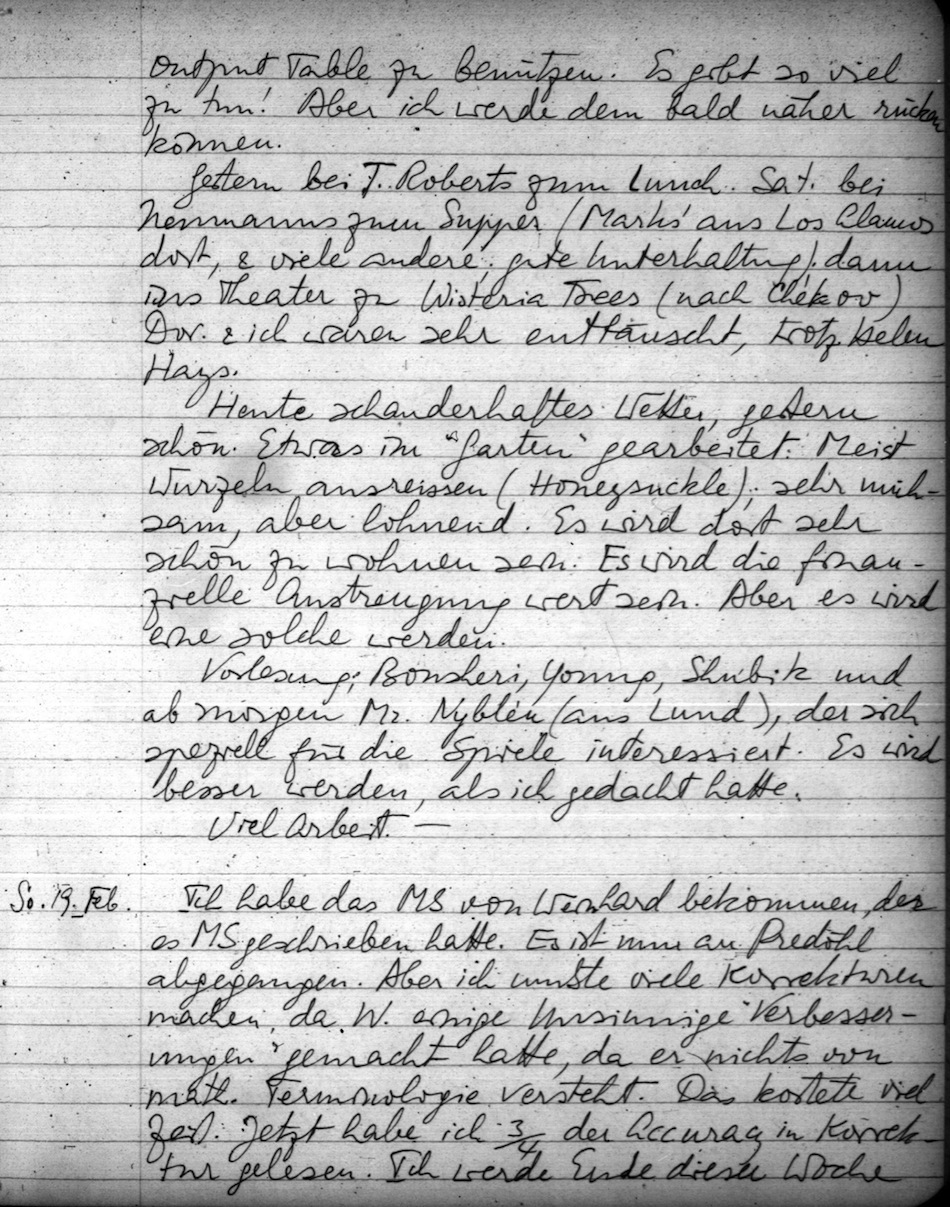 Output Table zu benützen. Es gibt so viel
zu tun! Aber ich werde dem bald näher rücken
können.
Gestern bei J. Roberts zum Lunch. Sat. bei
Neumanns zum Supper (Marks' aus Los Alamos
dort, & viele andere; gute Unterhaltung). dann
ins Theater zu Wisteria Trees (nach Chekov)
Dor. & ich waren sehr enttäuscht, trotz Helen
Hays.
Heute schauderhaftes Wetter, gestern
schön. Etwas im "Garten" gearbeitet: Meist
Wurzeln ausreissen (Honeysuckle); sehr müh-
sam, aber lohnend. Es wird dort sehr
schön zu wohnen sein. Es wird die finan-
zielle Anstrengung wert sein. Aber es wird
eine solche werden.
Vorlesung; Young, Shubik und
ab morgen Mr. Nyblén (aus Lund), der sich
speziell für die Spiele interessiert. Es wird
besser werden, als ich gedacht hatte.
Viel Arbeit. —
So. 19. Feb. Ich habe das MS von Weinhard bekommen, der
es MS geschrieben hatte. Es ist nun an Predöhl
abgegangen. Aber ich musste viele Korrekturen
machen, da W. einige unsinnige "Verbesser-
ungen" gemacht hatte, da er nichts von
math. Terminologie versteht. Das kostete viel
Zeit. Jetzt habe ich 3/4 der Accuracy in Korrek-
tur gelesen. Ich werde Ende dieser Woche